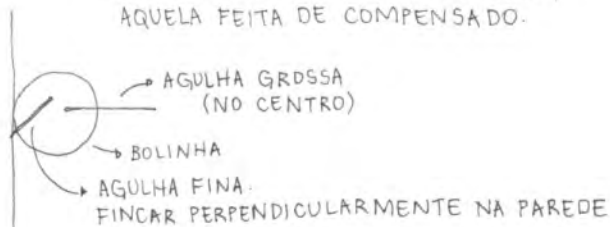 AQUELA FEITA DE COMPENSADO.
AGULHA GROSSA
(NO CENTRO)
BOLINHA
AGULHA FINA.
FINCAR PERPENDICULARMENTE NA PAREDE